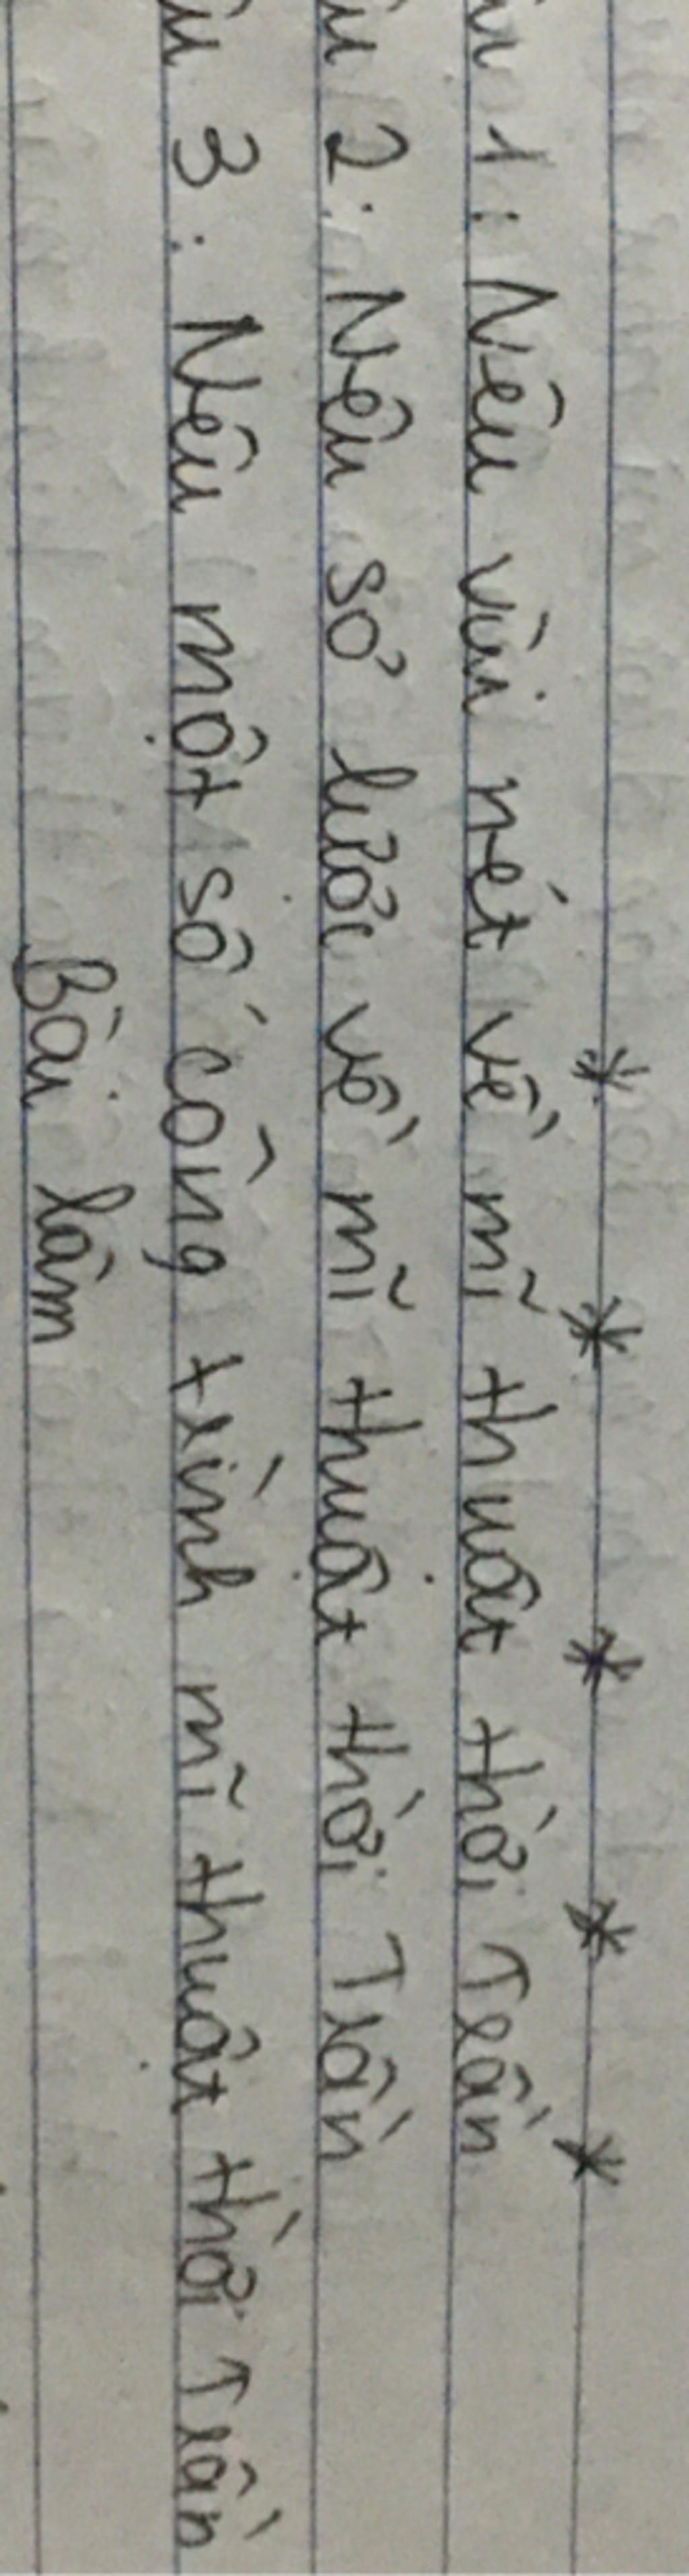 * * * * *
1: Nêu vài nét về mĩ thuật thời Trần
2: Nêu sơ lược về mĩ thuật thời Trần
3: Nêu một số công trình mĩ thuật thời Trần
Bài làm